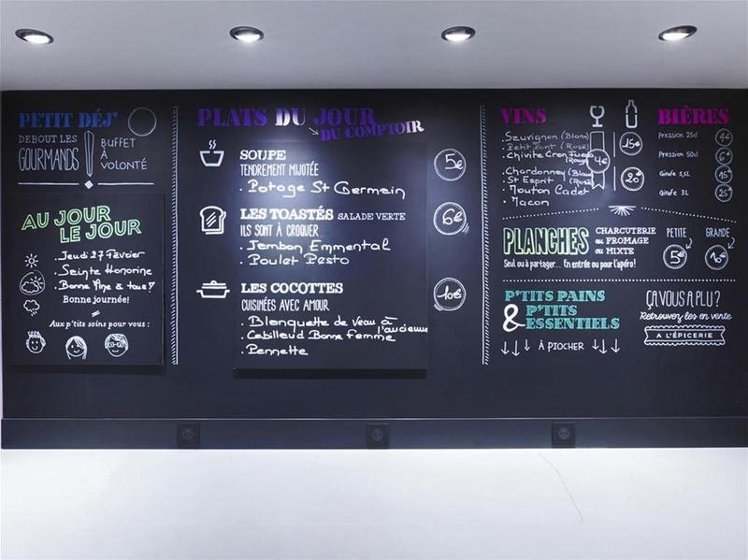 PETIT DÉJ'
DEBOUT LES
GOURMANDS
BUFFET
À
VOLONTÉ
AU JOUR
LE JOUR
Jeudi 27 Février
Sainte Honorine
Bonne fine à tous!
Bonne journée!
Aux p'tits soins pour vous:
PLATS DU JOUR
DU COMPTOIR
SOUPE
TENDREMENT MIJOTÉE
. Potage St Germain
5€
LES TOASTÉS SALADE VERTE
ILS SONT À CROQUER
. Jambon Emmental
. Poulet Pesto
6€
LES COCOTTES
CUISINÉES AVEC AMOUR
. Blanquette de Veau à l'ancienne
. Cabillaud Bonne Femme
. Pennette
10€
VINS
. Sauvignon (Blanc)
. Petit Pont (Rosé)
. Chinite (Rouge)
4€
15€
. Chardonnay (Blanc)
. St Esprit (Rosé)
. Mouton Cadet
. Macon
20€
BIÈRES
Pression 25cl 4€
Pression 50cl 6€
Girafe 1,5L 15€
Girafe 3L 25€
PLANCHES
CHARCUTERIE
ou FROMAGE
ou MIXTE
Seul ou à partager... En entrée ou pour l'apéro!
PETITE
5€
GRANDE
10€
P'TITS PAINS
& P'TITS
ESSENTIELS
À PIOCHER
ÇA VOUS A PLU?
Retrouvez les en vente
A L'ÉPICERIE